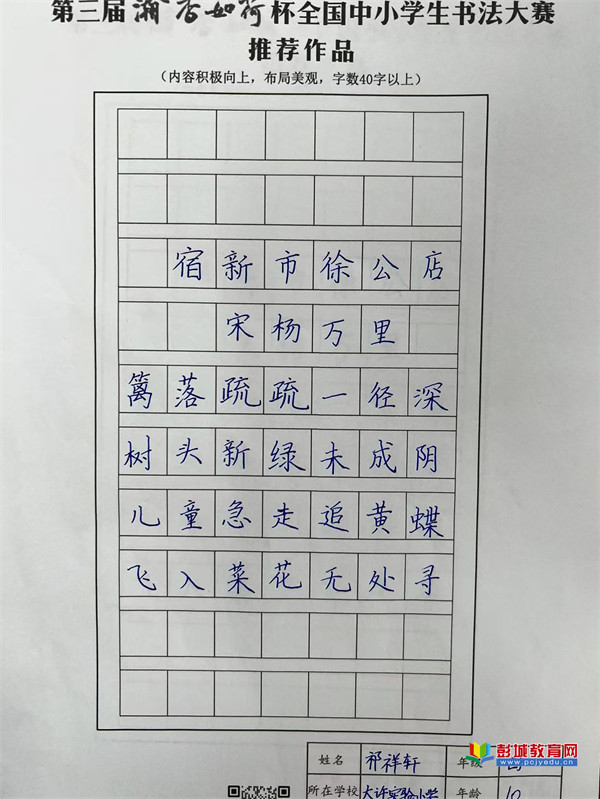 第三届瀚香如荷杯全国中小学生书法大赛
推荐作品
（内容积极向上，布局美观，字数40字以上）
宿新市徐公店
宋杨万里
篱落疏疏一径深
树头新绿未成阴
儿童急走追黄蝶
飞入菜花无处寻
姓名 祁祥轩 年级
所在学校 大许实验小学 年龄 10
彭城教育网
www.pcjyedu.cn